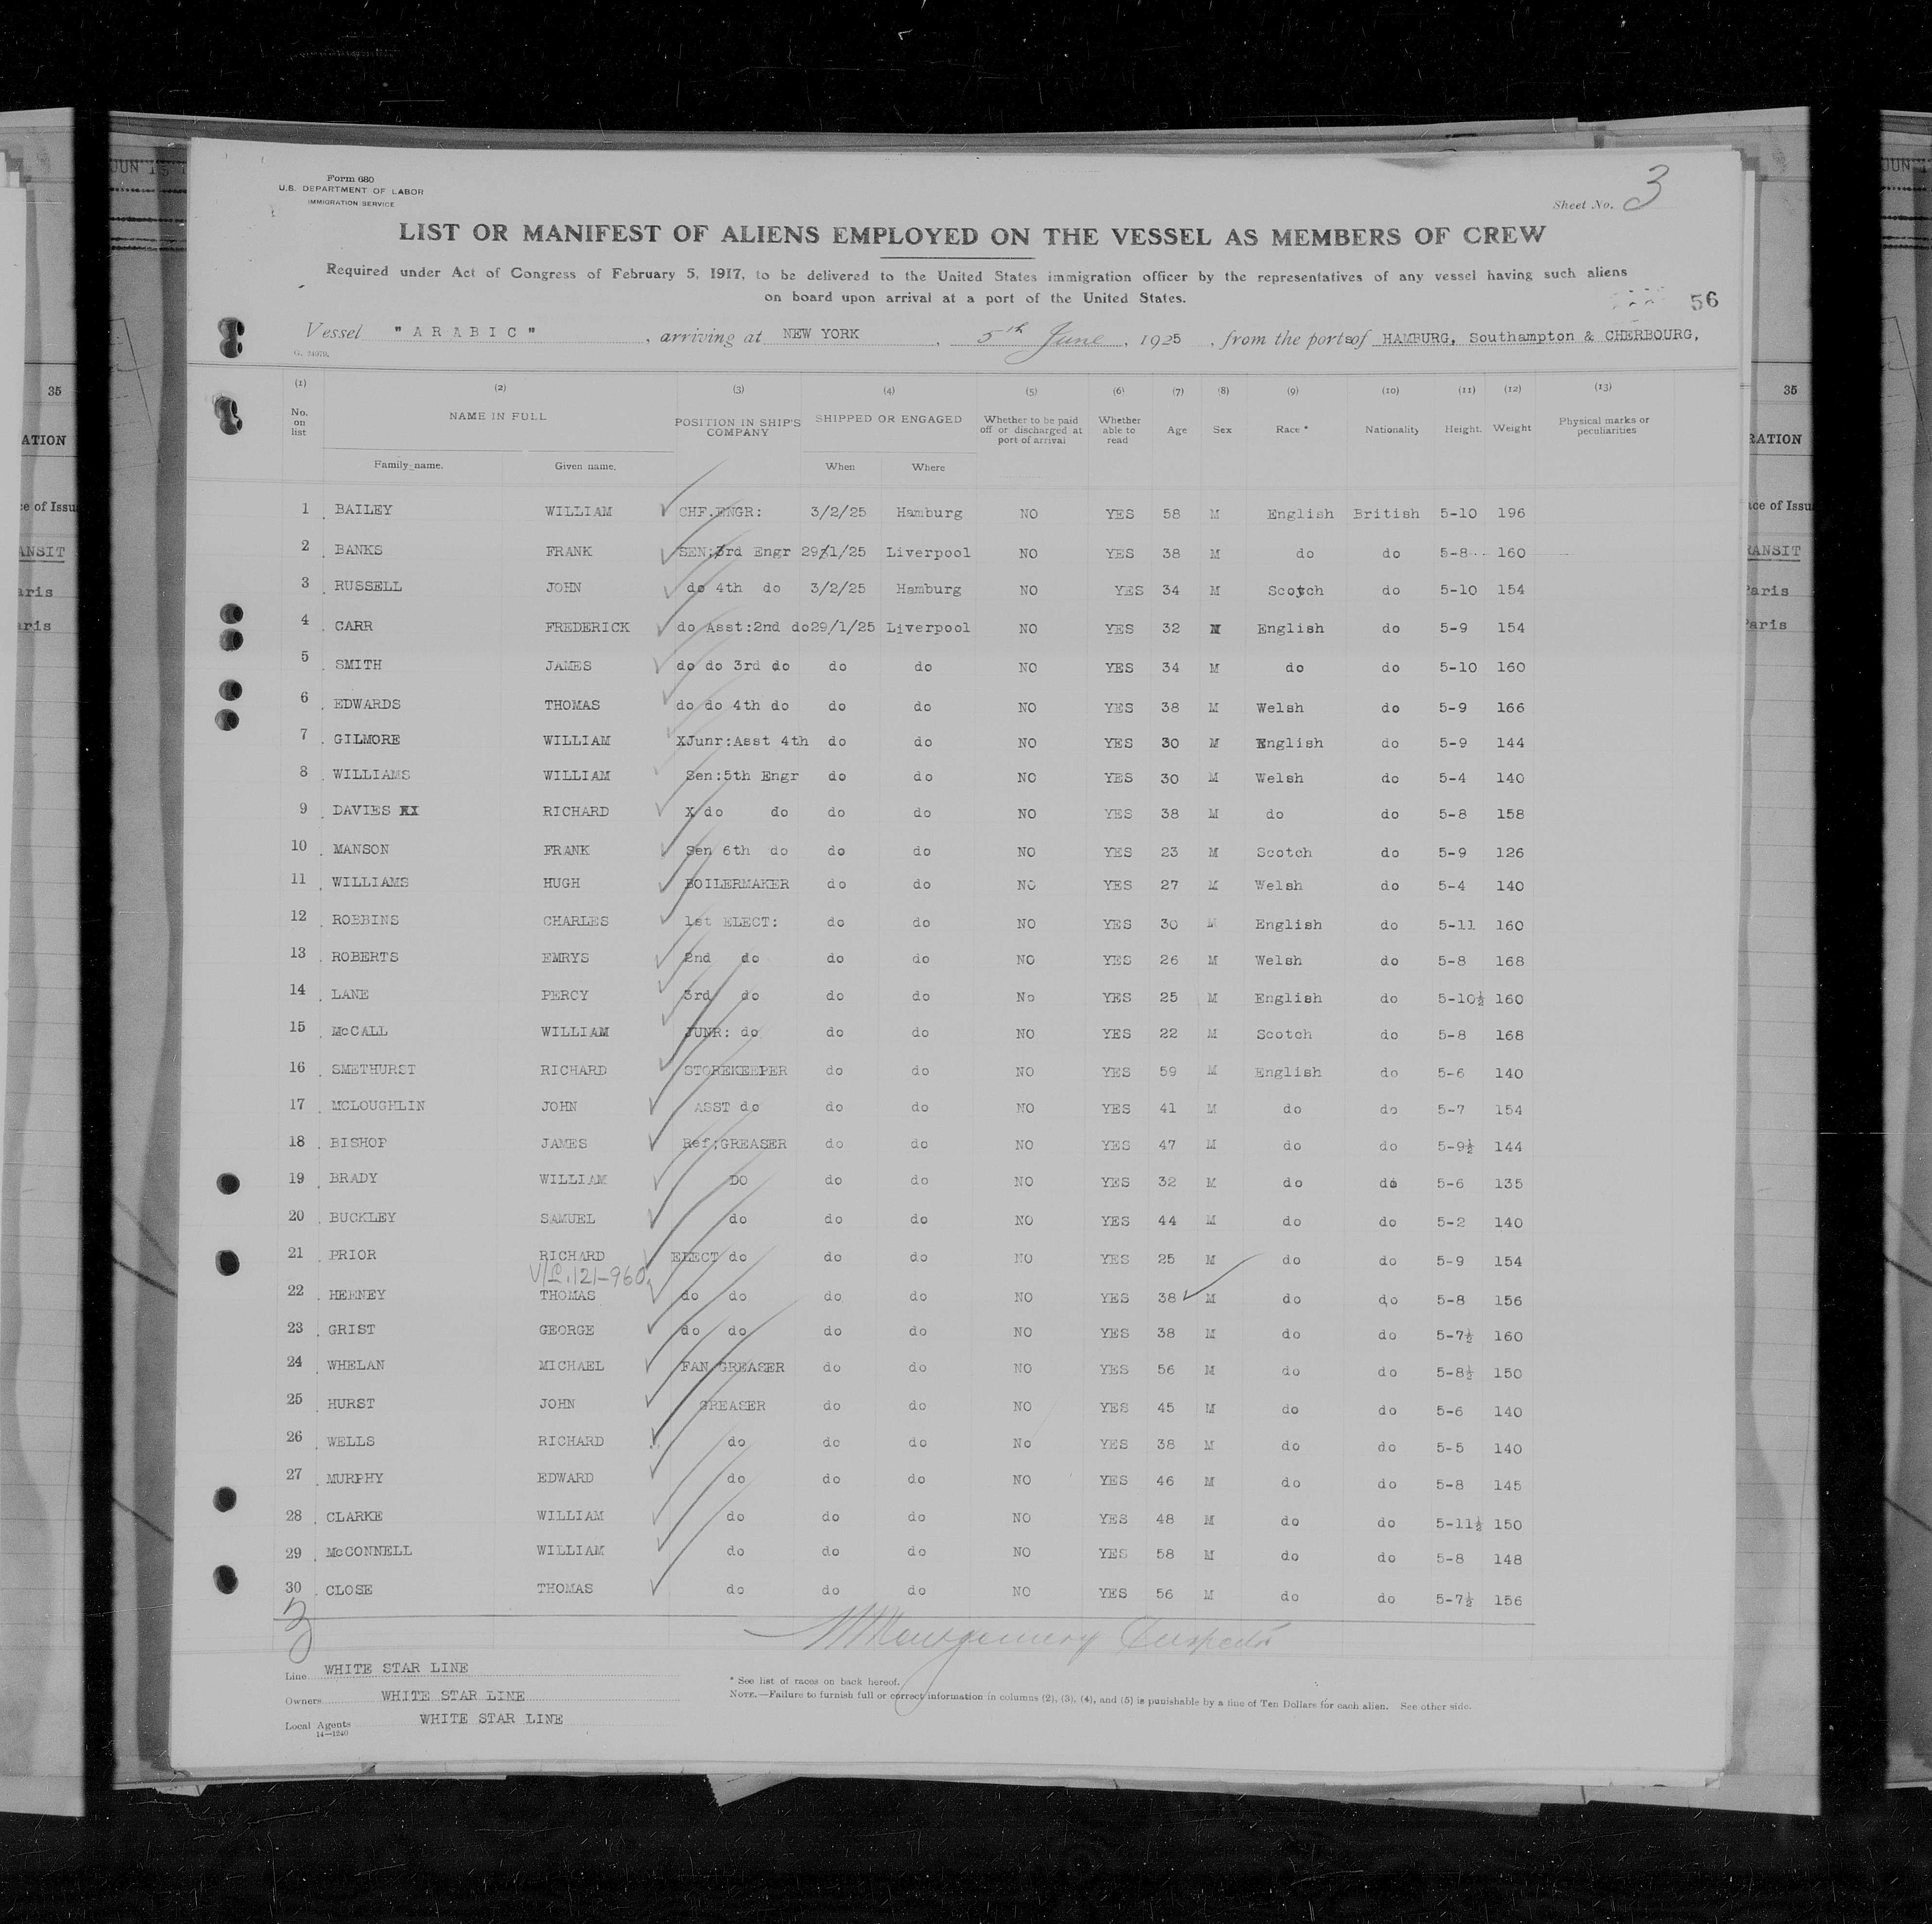 Form 680
U.S. DEPARTMENT OF LABOR
IMMIGRATION SERVICE
Sheet No. 3
LIST OR MANIFEST OF ALIENS EMPLOYED ON THE VESSEL AS MEMBERS OF CREW
Required under Act of Congress of February 5, 1917, to be delivered to the United States immigration officer by the representatives of any vessel having such aliens
on board upon arrival at a port of the United States.
56
Vessel "ARABIC", arriving at NEW YORK, 5th June, 1925, from the ports of HAMBURG, Southampton & CHERBOURG,
(1) (2) (3) (4) (5) (6) (7) (8) (9) (10) (11) (12) (13)
No. on list NAME IN FULL POSITION IN SHIP'S COMPANY SHIPPED OR ENGAGED Whether to be paid off or discharged at port of arrival Whether able to read Age Sex Race * Nationality Height. Weight Physical marks or peculiarities
Family name. Given name. When Where
1 BAILEY WILLIAM CHF.ENGR: 3/2/25 Hamburg NO YES 58 M English British 5-10 196
2 BANKS FRANK SEN:3rd Engr 29/1/25 Liverpool NO YES 38 M do do 5-8 160
3 RUSSELL JOHN do 4th do 3/2/25 Hamburg NO YES 34 M Scotch do 5-10 154
4 CARR FREDERICK do Asst:2nd do 29/1/25 Liverpool NO YES 32 M English do 5-9 154
5 SMITH JAMES do do 3rd do do do NO YES 34 M do do 5-10 160
6 EDWARDS THOMAS do do 4th do do do NO YES 38 M Welsh do 5-9 166
7 GILMORE WILLIAM XJunr:Asst 4th do do NO YES 30 M English do 5-9 144
8 WILLIAMS WILLIAM Sen:5th Engr do do NO YES 30 M Welsh do 5-4 140
9 DAVIES RICHARD X do do do do NO YES 38 M do do 5-8 158
10 MANSON FRANK Sen 6th do do do NO YES 23 M Scotch do 5-9 126
11 WILLIAMS HUGH BOILERMAKER do do NO YES 27 M Welsh do 5-4 140
12 ROBBINS CHARLES 1st ELECT: do do NO YES 30 M English do 5-11 160
13 ROBERTS EMRYS 2nd do do do NO YES 26 M Welsh do 5-8 168
14 LANE PERCY 3rd do do do No YES 25 M English do 5-10½ 160
15 McCALL WILLIAM JUNR: do do do NO YES 22 M Scotch do 5-8 168
16 SMETHURST RICHARD STOREKEEPER do do NO YES 59 M English do 5-6 140
17 MCLOUGHLIN JOHN ASST do do do NO YES 41 M do do 5-7 154
18 BISHOP JAMES Ref;GREASER do do NO YES 47 M do do 5-9½ 144
19 BRADY WILLIAM DO do do NO YES 32 M do do 5-6 135
20 BUCKLEY SAMUEL do do do NO YES 44 M do do 5-2 140
21 PRIOR RICHARD ELECT do do do NO YES 25 M do do 5-9 154
V/L.121-960
22 HEENEY THOMAS do do do do NO YES 38 M do do 5-8 156
23 GRIST GEORGE do do do do NO YES 38 M do do 5-7½ 160
24 WHELAN MICHAEL FAN GREASER do do NO YES 56 M do do 5-8½ 150
25 HURST JOHN GREASER do do NO YES 45 M do do 5-6 140
26 WELLS RICHARD do do do No YES 38 M do do 5-5 140
27 MURPHY EDWARD do do do NO YES 46 M do do 5-8 145
28 CLARKE WILLIAM do do do NO YES 48 M do do 5-11½ 150
29 McCONNELL WILLIAM do do do NO YES 58 M do do 5-8 148
30 CLOSE THOMAS do do do NO YES 56 M do do 5-7½ 156
Montgomery Inspector
Line WHITE STAR LINE
Owners WHITE STAR LINE
Local Agents WHITE STAR LINE
14—1240
* See list of races on back hereof.
NOTE.—Failure to furnish full or correct information in columns (2), (3), (4), and (5) is punishable by a fine of Ten Dollars for each alien. See other side.
JUN 15
35
ATION
ce of Issu
ANSIT
aris
aris
JUN 1
35
RATION
ace of Issu
RANSIT
Paris
Paris